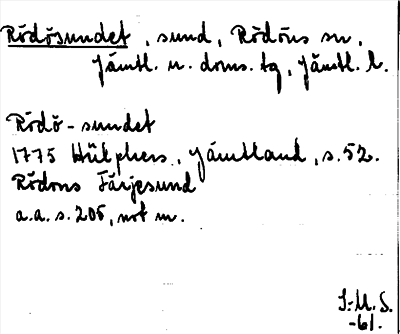 Rödösundet, sund, Rödöns sn,
Jämtl. n. doms. tg, Jämtl. l.
Rödö-sundet
1775 Hülphers, Jämtland, s. 52.
Rödons Färjesund
a.a. s. 205, not m.
S. M. S.
-61.